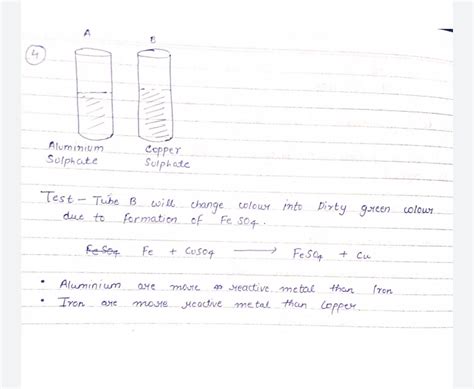 A
B
4
Aluminium Sulphate
Copper Sulphate
Test - Tube B will change colour into Dirty green colour
due to formation of FeSO4.
FeSO4 Fe + CuSO4 → FeSO4 + Cu
• Aluminium are more reactive metal than Iron
• Iron are more reactive metal than Copper.